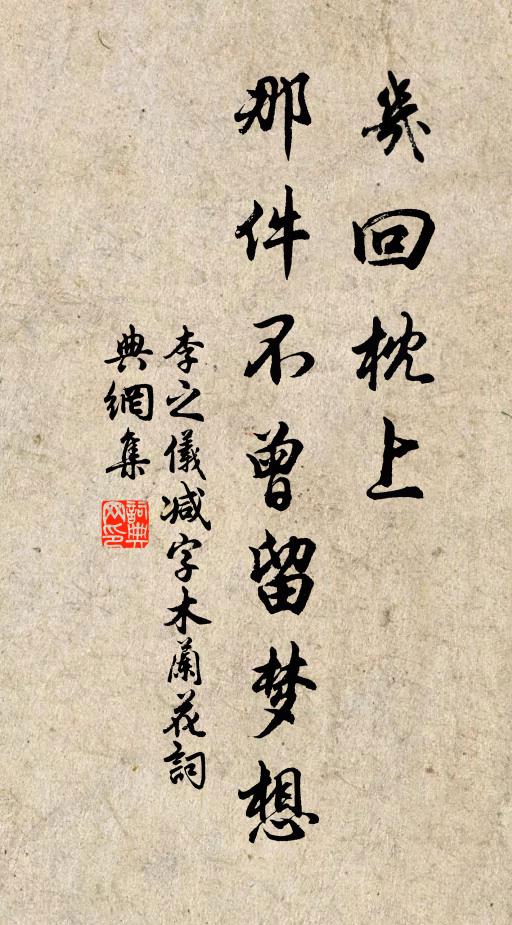 幾回枕上
那件不曾留梦想
李之儀减字木蘭花詞
典網集
詞典
网印